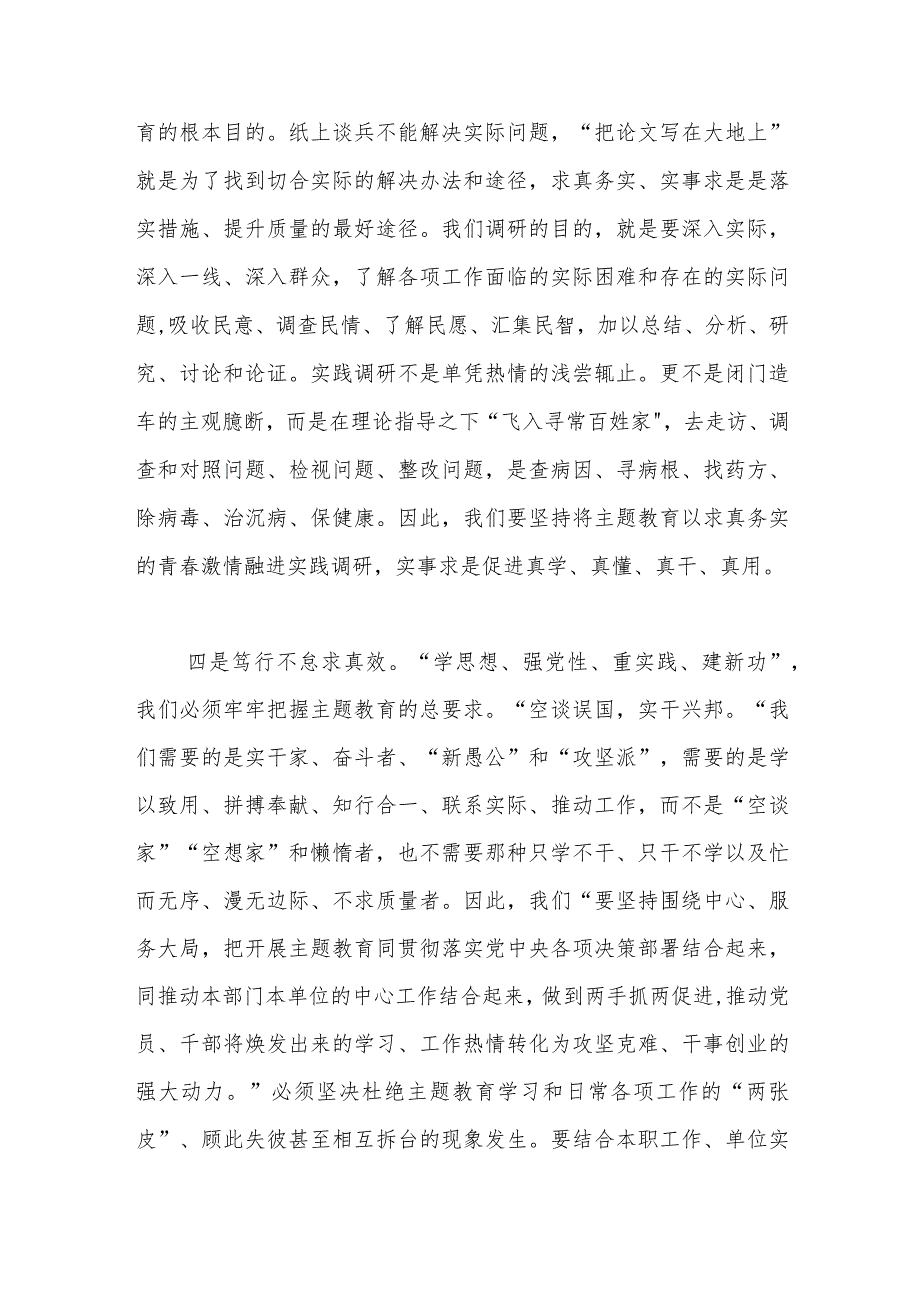 育的根本目的。纸上谈兵不能解决实际问题，“把论文写在大地上”
就是为了找到切合实际的解决办法和途径，求真务实、实事求是是落
实措施、提升质量的最好途径。我们调研的目的，就是要深入实际，
深入一线、深入群众，了解各项工作面临的实际困难和存在的实际问
题,吸收民意、调查民情、了解民愿、汇集民智，加以总结、分析、研
究、讨论和论证。实践调研不是单凭热情的浅尝辄止。更不是闭门造
车的主观臆断，而是在理论指导之下“飞入寻常百姓家"，去走访、调
查和对照问题、检视问题、整改问题，是查病因、寻病根、找药方、
除病毒、治沉病、保健康。因此，我们要坚持将主题教育以求真务实
的青春激情融进实践调研，实事求是促进真学、真懂、真干、真用。
四是笃行不怠求真效。“学思想、强党性、重实践、建新功”，
我们必须牢牢把握主题教育的总要求。“空谈误国，实干兴邦。“我
们需要的是实干家、奋斗者、“新愚公”和“攻坚派”，需要的是学
以致用、拼搏奉献、知行合一、联系实际、推动工作，而不是“空谈
家”“空想家”和懒惰者，也不需要那种只学不干、只干不学以及忙
而无序、漫无边际、不求质量者。因此，我们“要坚持围绕中心、服
务大局，把开展主题教育同贯彻落实党中央各项决策部署结合起来，
同推动本部门本单位的中心工作结合起来,做到两手抓两促进,推动党
员、千部将焕发出来的学习、工作热情转化为攻坚克难、干事创业的
强大动力。”必须坚决杜绝主题教育学习和日常各项工作的“两张
皮”、顾此失彼甚至相互拆台的现象发生。要结合本职工作、单位实